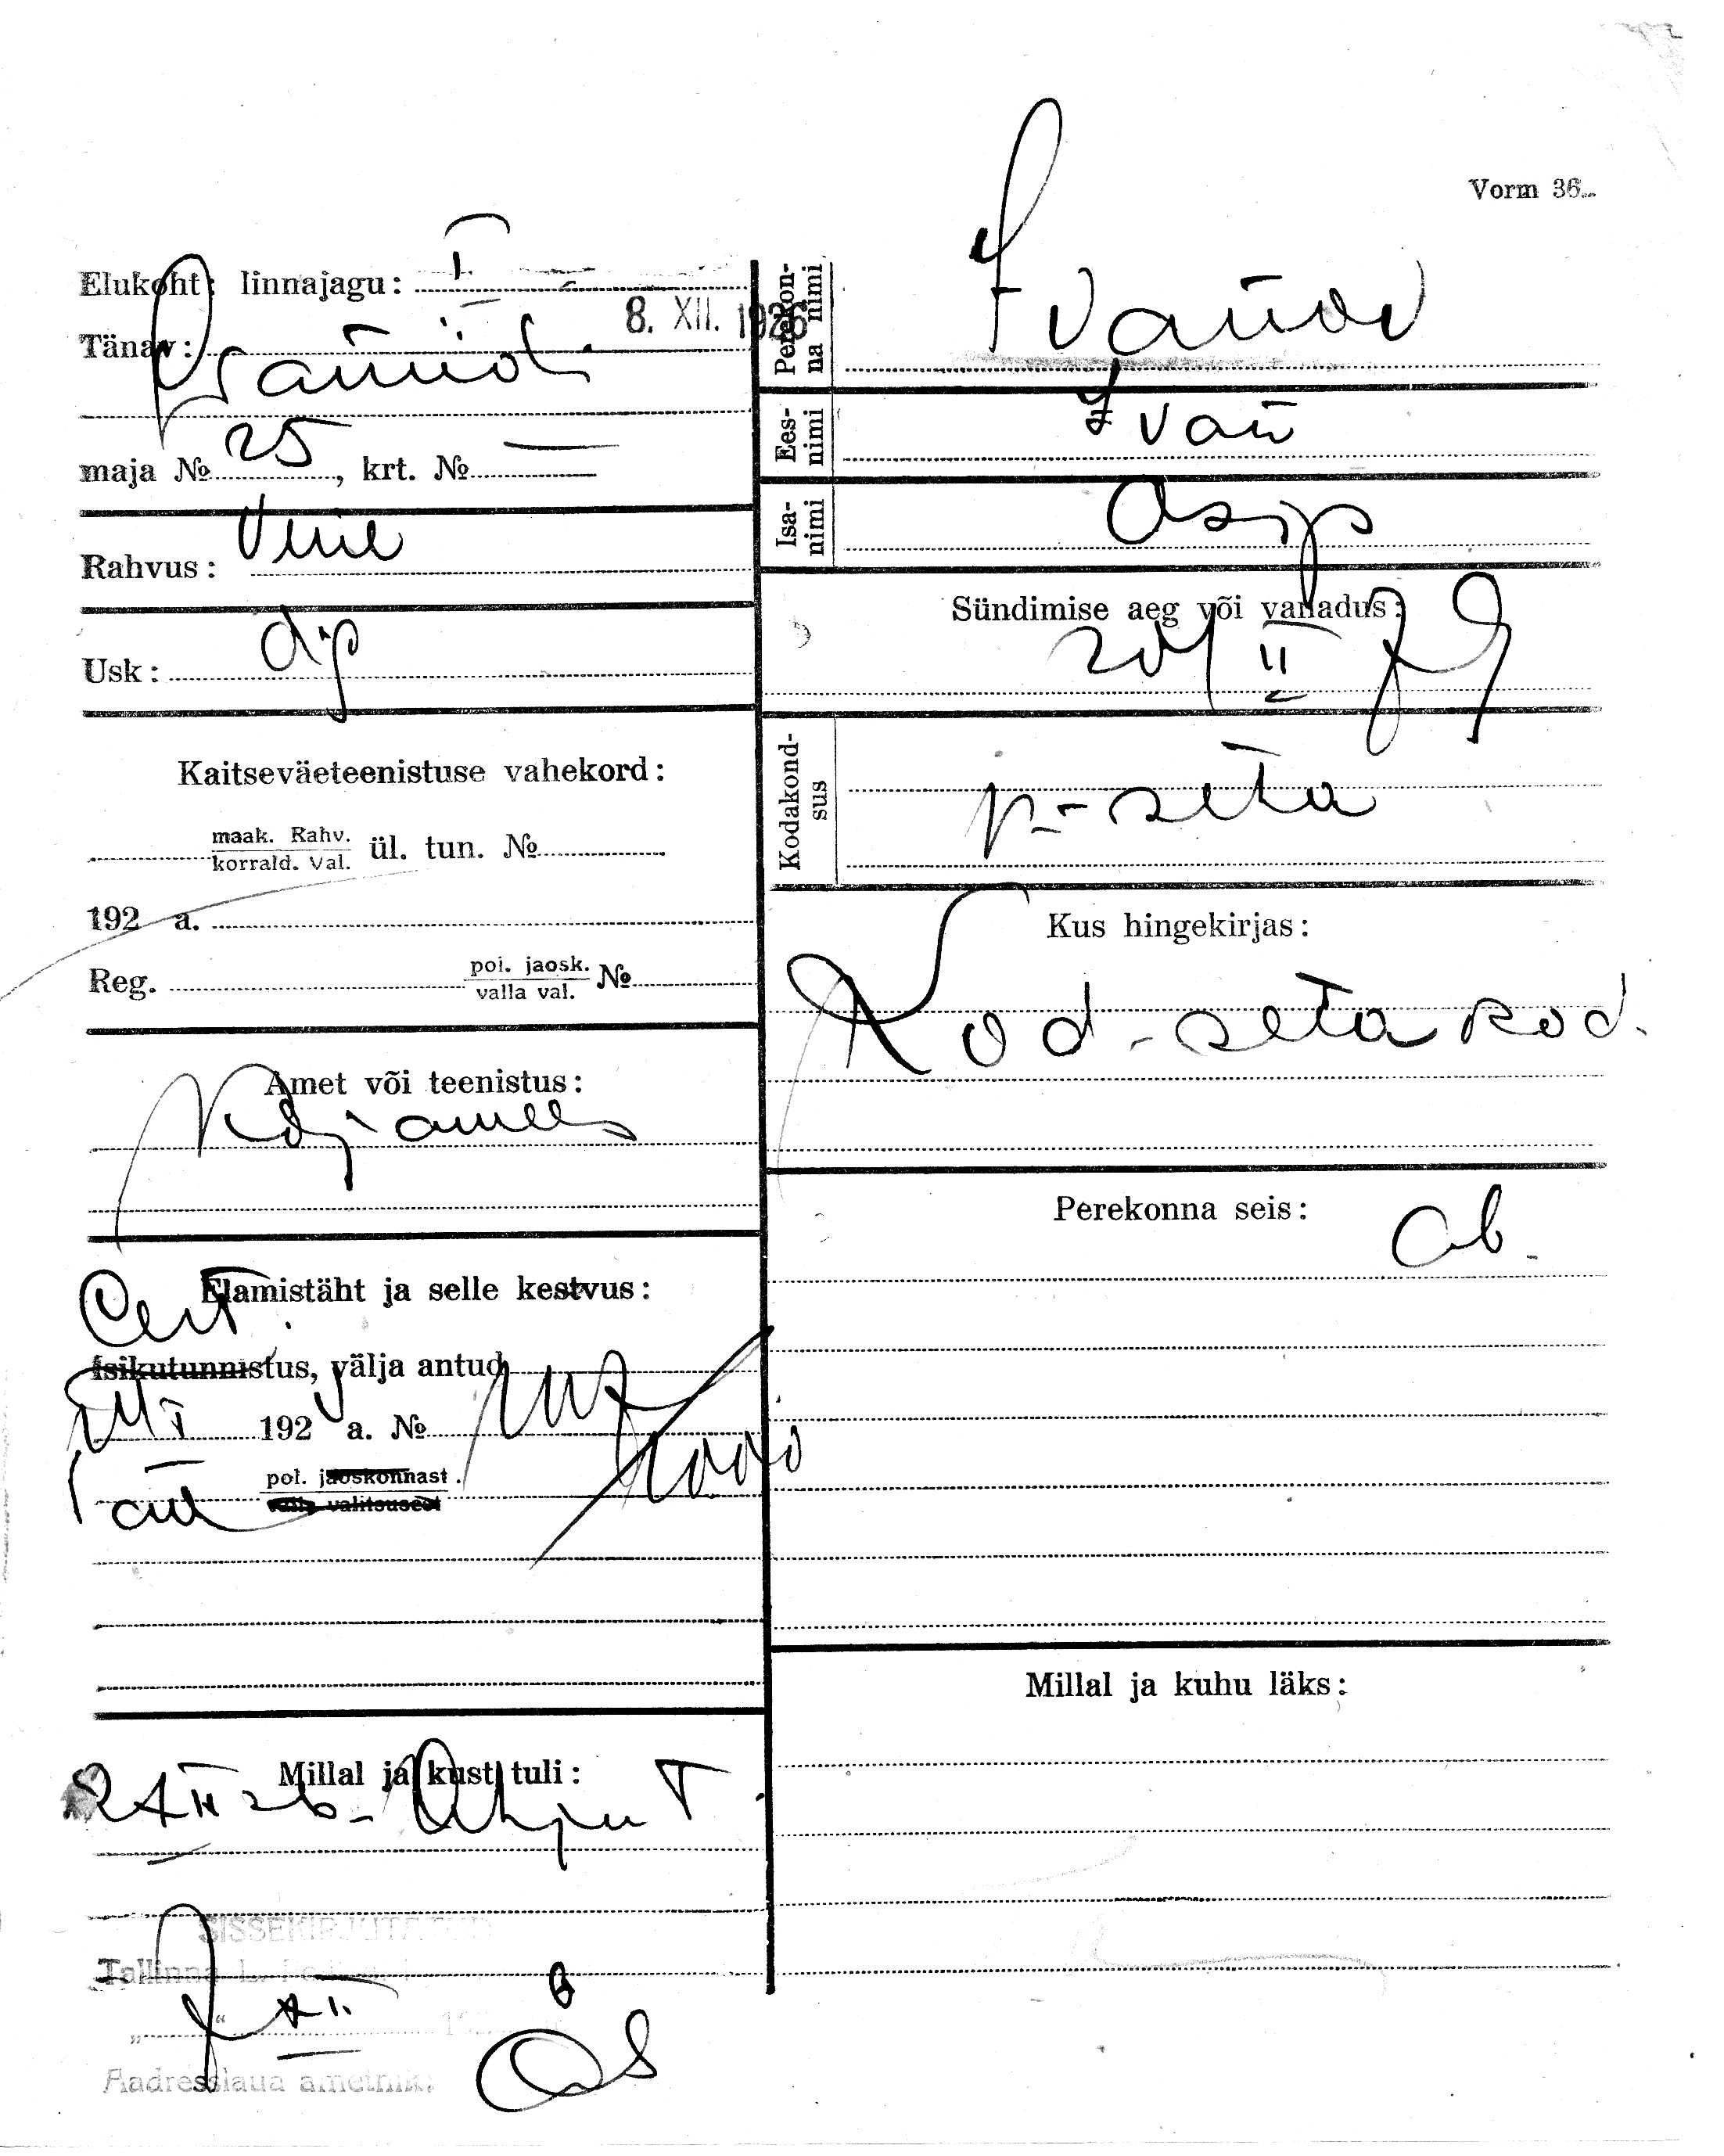 Vorm 36
Elukoht: linnajagu: I
8. XII. 1926
Tänav:
maja № 25, krt. № —
Rahvus: Vene
Usk: ap
Kaitseväeteenistuse vahekord:
maak. Rahv.
korrald. Val. ül. tun. №
192 a.
Reg. pol. jaosk.
valla val. №
Amet või teenistus:
Elamistäht ja selle kestvus:
Cert.
Isikutunnistus, välja antud
192 a. №
pol. jaoskonnast
valla valitsusest
Millal ja kust tuli:
SISSEKIRJUTATUD
Tallinna L.
Aadresslaua ametnik:
Perekonna nimi Ivanov
Eesnimi Ivan
Isanimi Osip
Sündimise aeg või vanadus:
20/II 79
Kodakondsus p-seta
Kus hingekirjas:
Kod-seta kod.
Perekonna seis: ab.
Millal ja kuhu läks: